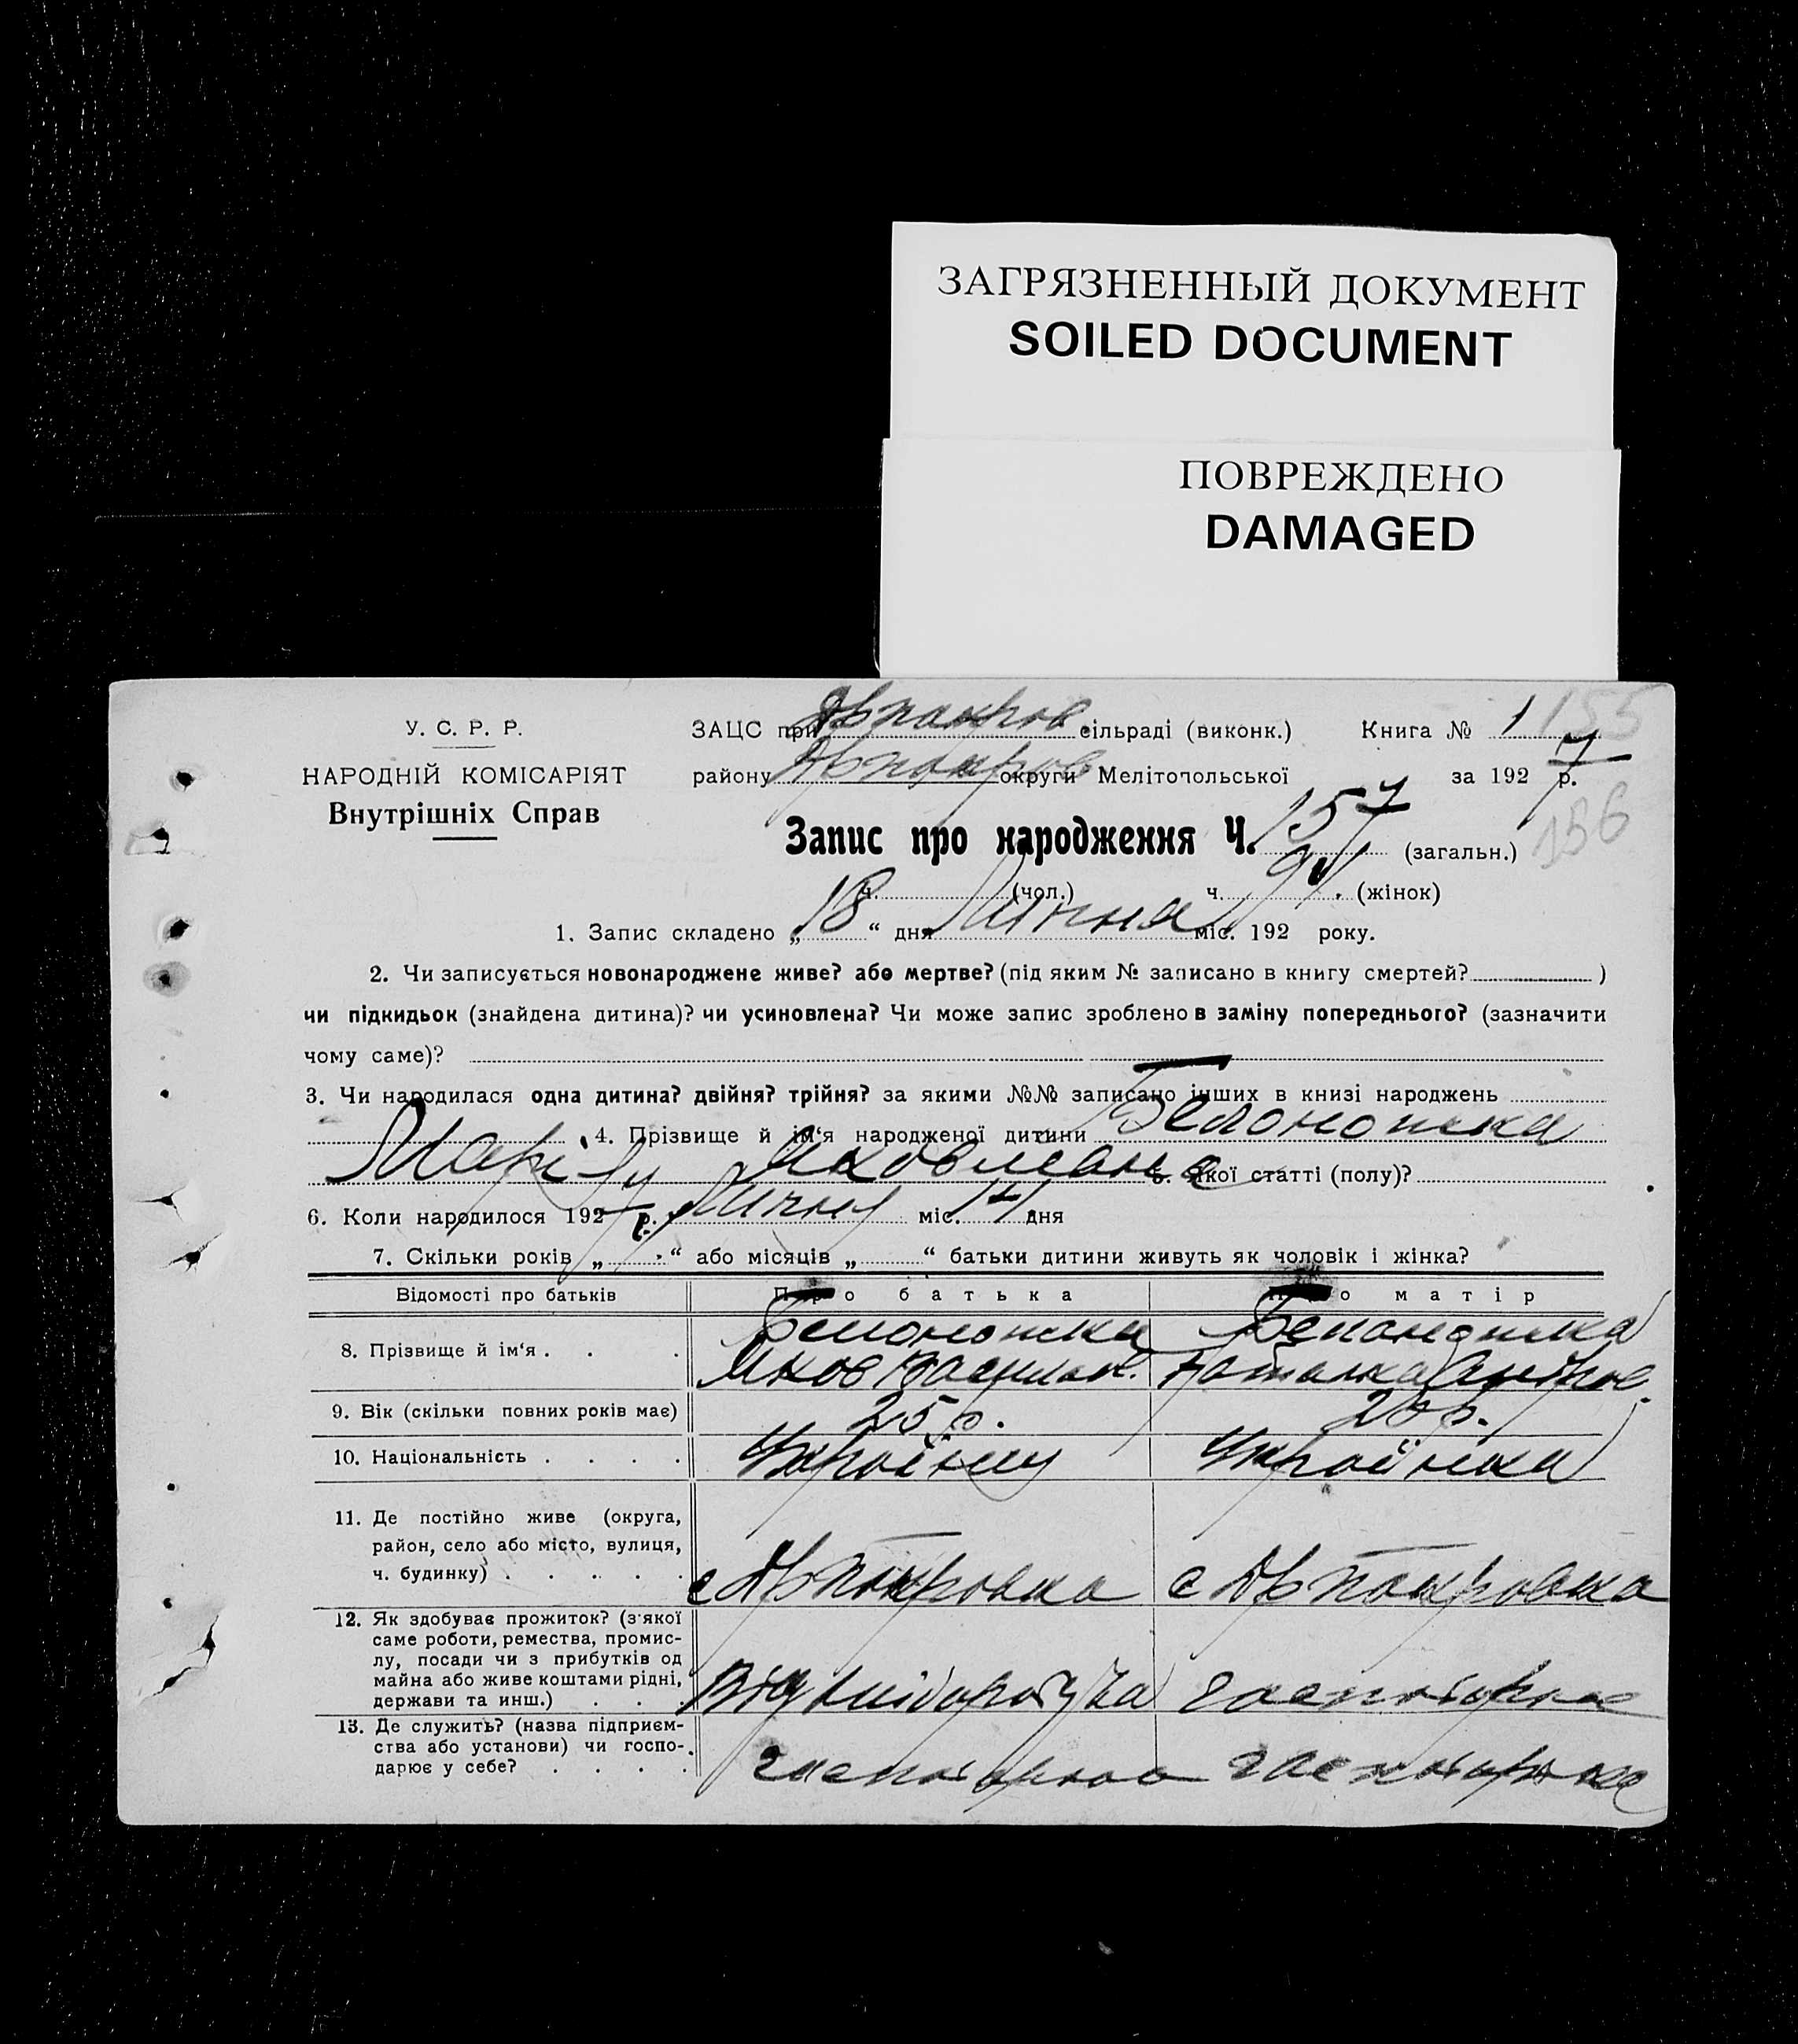 ЗАГРЯЗНЕННЫЙ ДОКУМЕНТ
SOILED DOCUMENT
ПОВРЕЖДЕНО
DAMAGED
У. С. Р. Р.
НАРОДНІЙ КОМІСАРІЯТ
Внутрішніх Справ
ЗАЦС при Дрпокров сільраді (виконк.) Книга № 1 155
району Дрпокров округи Мелітопольської за 1927 р.
156
Запис про народження Ч. 157 (загальн.)
ч. (чол.) ч. 91 (жінок)
1. Запис складено „18“ дня Липня міс. 192 року.
2. Чи записується новонароджене живе? або мертве? (під яким № записано в книгу смертей? )
чи підкидьок (знайдена дитина)? чи усиновлена? Чи може запис зроблено в заміну попереднього? (зазначити
чому саме)?
3. Чи народилася одна дитина? двійня? трійня? за якими №№ записано інших в книзі народжень
4. Прізвище й ім‘я народженої дитини Белоножка
Марія Яковлевна 5. Якої статті (полу)?
6. Коли народилося 1927 р. Липня міс. 14 дня
7. Скільки років „ “ або місяців „ “ батьки дитини живуть як чоловік і жінка?
Відомості про батьків Про батька Про матір
8. Прізвище й ім‘я . . . Белоножка Белоножка
Яков Васильов. Наталка Андрієв.
9. Вік (скільки повних років має) 25 р. 20 р.
10. Національність . . . . Українец Українка
11. Де постійно живе (округа,
район, село або місто, вулиця,
ч. будинку) . . . . . с Дрпокровка с Дрпокровка
12. Як здобуває прожиток? (з якої
саме роботи, ремества, промис-
лу, посади чи з прибутків од
майна або живе коштами рідні,
держави та инш.) . . . Від хлібороб господаркою
13. Де служить? (назва підприєм-
ства або установи) чи госпо-
дарює у себе? . . . . господарює господарює